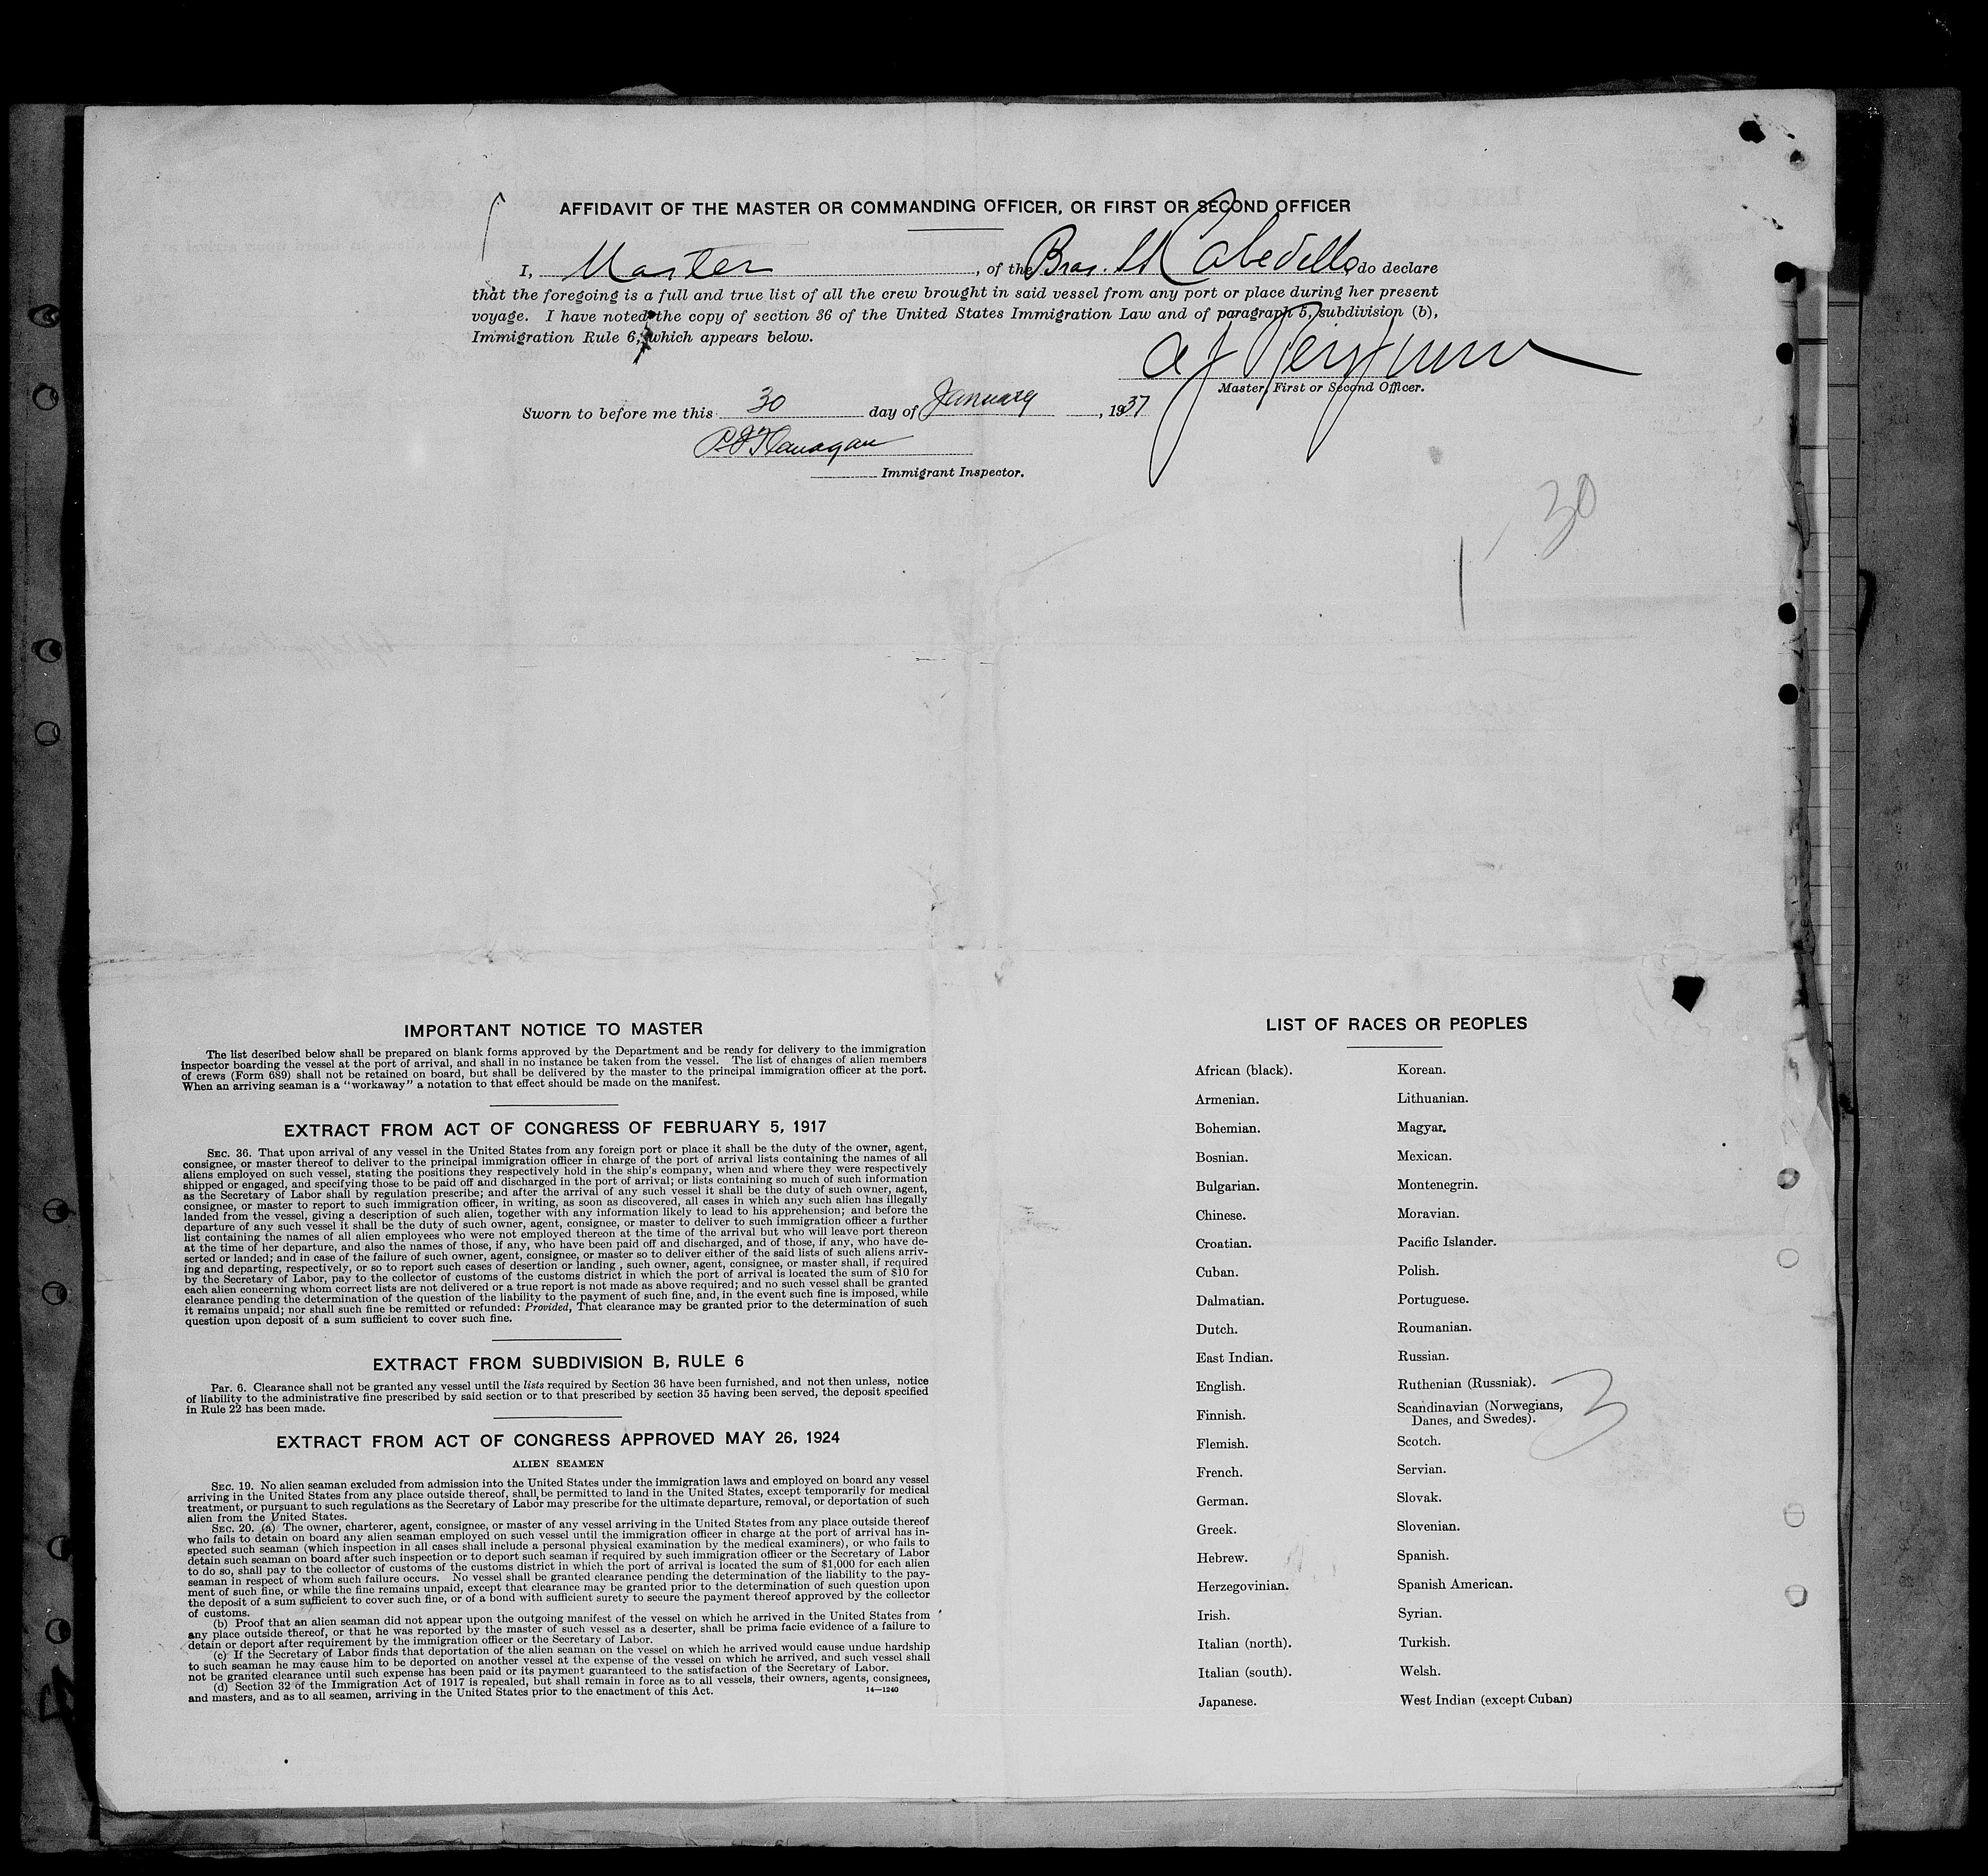 AFFIDAVIT OF THE MASTER OR COMMANDING OFFICER, OR FIRST OR SECOND OFFICER
I, Master, of the Bras. Cabedello do declare
that the foregoing is a full and true list of all the crew brought in said vessel from any port or place during her present
voyage. I have noted the copy of section 36 of the United States Immigration Law and of paragraph 5, subdivision (b),
Immigration Rule 6, which appears below.
Master, First or Second Officer.
Sworn to before me this 30 day of January, 1937
P J Flanagan
Immigrant Inspector.
30
IMPORTANT NOTICE TO MASTER
The list described below shall be prepared on blank forms approved by the Department and be ready for delivery to the immigration
inspector boarding the vessel at the port of arrival, and shall in no instance be taken from the vessel. The list of changes of alien members
of crews (Form 689) shall not be retained on board, but shall be delivered by the master to the principal immigration officer at the port.
When an arriving seaman is a "workaway" a notation to that effect should be made on the manifest.
EXTRACT FROM ACT OF CONGRESS OF FEBRUARY 5, 1917
SEC. 36. That upon arrival of any vessel in the United States from any foreign port or place it shall be the duty of the owner, agent,
consignee, or master thereof to deliver to the principal immigration officer in charge of the port of arrival lists containing the names of all
aliens employed on such vessel, stating the positions they respectively hold in the ship's company, when and where they were respectively
shipped or engaged, and specifying those to be paid off and discharged in the port of arrival; or lists containing so much of such information
as the Secretary of Labor shall by regulation prescribe; and after the arrival of any such vessel it shall be the duty of such owner, agent,
consignee, or master to report to such immigration officer, in writing, as soon as discovered, all cases in which any such alien has illegally
landed from the vessel, giving a description of such alien, together with any information likely to lead to his apprehension; and before the
departure of any such vessel it shall be the duty of such owner, agent, consignee, or master to deliver to such immigration officer a further
list containing the names of all alien employees who were not employed thereon at the time of the arrival but who will leave port thereon
at the time of her departure, and also the names of those, if any, who have been paid off and discharged, and of those, if any, who have de-
serted or landed; and in case of the failure of such owner, agent, consignee, or master so to deliver either of the said lists of such aliens arriv-
ing and departing, respectively, or so to report such cases of desertion or landing , such owner, agent, consignee, or master shall, if required
by the Secretary of Labor, pay to the collector of customs of the customs district in which the port of arrival is located the sum of $10 for
each alien concerning whom correct lists are not delivered or a true report is not made as above required; and no such vessel shall be granted
clearance pending the determination of the question of the liability to the payment of such fine, and, in the event such fine is imposed, while
it remains unpaid; nor shall such fine be remitted or refunded: Provided, That clearance may be granted prior to the determination of such
question upon deposit of a sum sufficient to cover such fine.
EXTRACT FROM SUBDIVISION B, RULE 6
Par. 6. Clearance shall not be granted any vessel until the lists required by Section 36 have been furnished, and not then unless, notice
of liability to the administrative fine prescribed by said section or to that prescribed by section 35 having been served, the deposit specified
in Rule 22 has been made.
EXTRACT FROM ACT OF CONGRESS APPROVED MAY 26, 1924
ALIEN SEAMEN
SEC. 19. No alien seaman excluded from admission into the United States under the immigration laws and employed on board any vessel
arriving in the United States from any place outside thereof, shall be permitted to land in the United States, except temporarily for medical
treatment, or pursuant to such regulations as the Secretary of Labor may prescribe for the ultimate departure, removal, or deportation of such
alien from the United States.
SEC. 20. (a) The owner, charterer, agent, consignee, or master of any vessel arriving in the United States from any place outside thereof
who fails to detain on board any alien seaman employed on such vessel until the immigration officer in charge at the port of arrival has in-
spected such seaman (which inspection in all cases shall include a personal physical examination by the medical examiners), or who fails to
detain such seaman on board after such inspection or to deport such seaman if required by such immigration officer or the Secretary of Labor
to do so, shall pay to the collector of customs of the customs district in which the port of arrival is located the sum of $1,000 for each alien
seaman in respect of whom such failure occurs. No vessel shall be granted clearance pending the determination of the liability to the pay-
ment of such fine, or while the fine remains unpaid, except that clearance may be granted prior to the determination of such question upon
the deposit of a sum sufficient to cover such fine, or of a bond with sufficient surety to secure the payment thereof approved by the collector
of customs.
(b) Proof that an alien seaman did not appear upon the outgoing manifest of the vessel on which he arrived in the United States from
any place outside thereof, or that he was reported by the master of such vessel as a deserter, shall be prima facie evidence of a failure to
detain or deport after requirement by the immigration officer or the Secretary of Labor.
(c) If the Secretary of Labor finds that deportation of the alien seaman on the vessel on which he arrived would cause undue hardship
to such seaman he may cause him to be deported on another vessel at the expense of the vessel on which he arrived, and such vessel shall
not be granted clearance until such expense has been paid or its payment guaranteed to the satisfaction of the Secretary of Labor.
(d) Section 32 of the Immigration Act of 1917 is repealed, but shall remain in force as to all vessels, their owners, agents, consignees,
and masters, and as to all seamen, arriving in the United States prior to the enactment of this Act.
14—1240
LIST OF RACES OR PEOPLES
African (black).
Armenian.
Bohemian.
Bosnian.
Bulgarian.
Chinese.
Croatian.
Cuban.
Dalmatian.
Dutch.
East Indian.
English.
Finnish.
Flemish.
French.
German.
Greek.
Hebrew.
Herzegovinian.
Irish.
Italian (north).
Italian (south).
Japanese.
Korean.
Lithuanian.
Magyar.
Mexican.
Montenegrin.
Moravian.
Pacific Islander.
Polish.
Portuguese.
Roumanian.
Russian.
Ruthenian (Russniak).
Scandinavian (Norwegians,
Danes, and Swedes).
Scotch.
Servian.
Slovak.
Slovenian.
Spanish.
Spanish American.
Syrian.
Turkish.
Welsh.
West Indian (except Cuban)
3